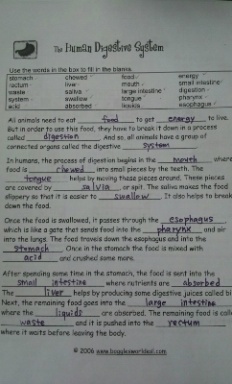 The Human Digestive System
Use the words in the box to fill in the blanks.
stomach chewed food energy
rectum liver mouth small intestine
waste saliva large intestine digestion
system swallow tongue pharynx
acid absorbed liquids esophagus
All animals need to eat food to get energy to live.
But in order to use this food, they have to break it down in a process
called digestion. And so, all animals have a group of
connected organs called the digestive system.
In humans, the process of digestion begins in the mouth where
food is chewed into small pieces by the teeth. The
tongue helps by moving these pieces around. These pieces
are covered by salvia or spit. The saliva makes the food
slippery so that it is easier to swallow. It also helps to break
down the food.
Once the food is swallowed, it passes through the esophagus
which is like a gate that sends food into the pharynx and air
into the lungs. The food travels down the esophagus and into the
stomach. Once in the stomach the food is mixed with
acid and crushed some more.
After spending some time in the stomach, the food is sent into the
small intestine where nutrients are absorbed.
The liver helps by producing some digestive juices called bi
Next, the remaining food goes into the large intestine
where the liquids are absorbed. The remaining food is call
waste and it is pushed into the rectum
where it waits before leaving the body.
© 2006 www.bogglesworldesl.com